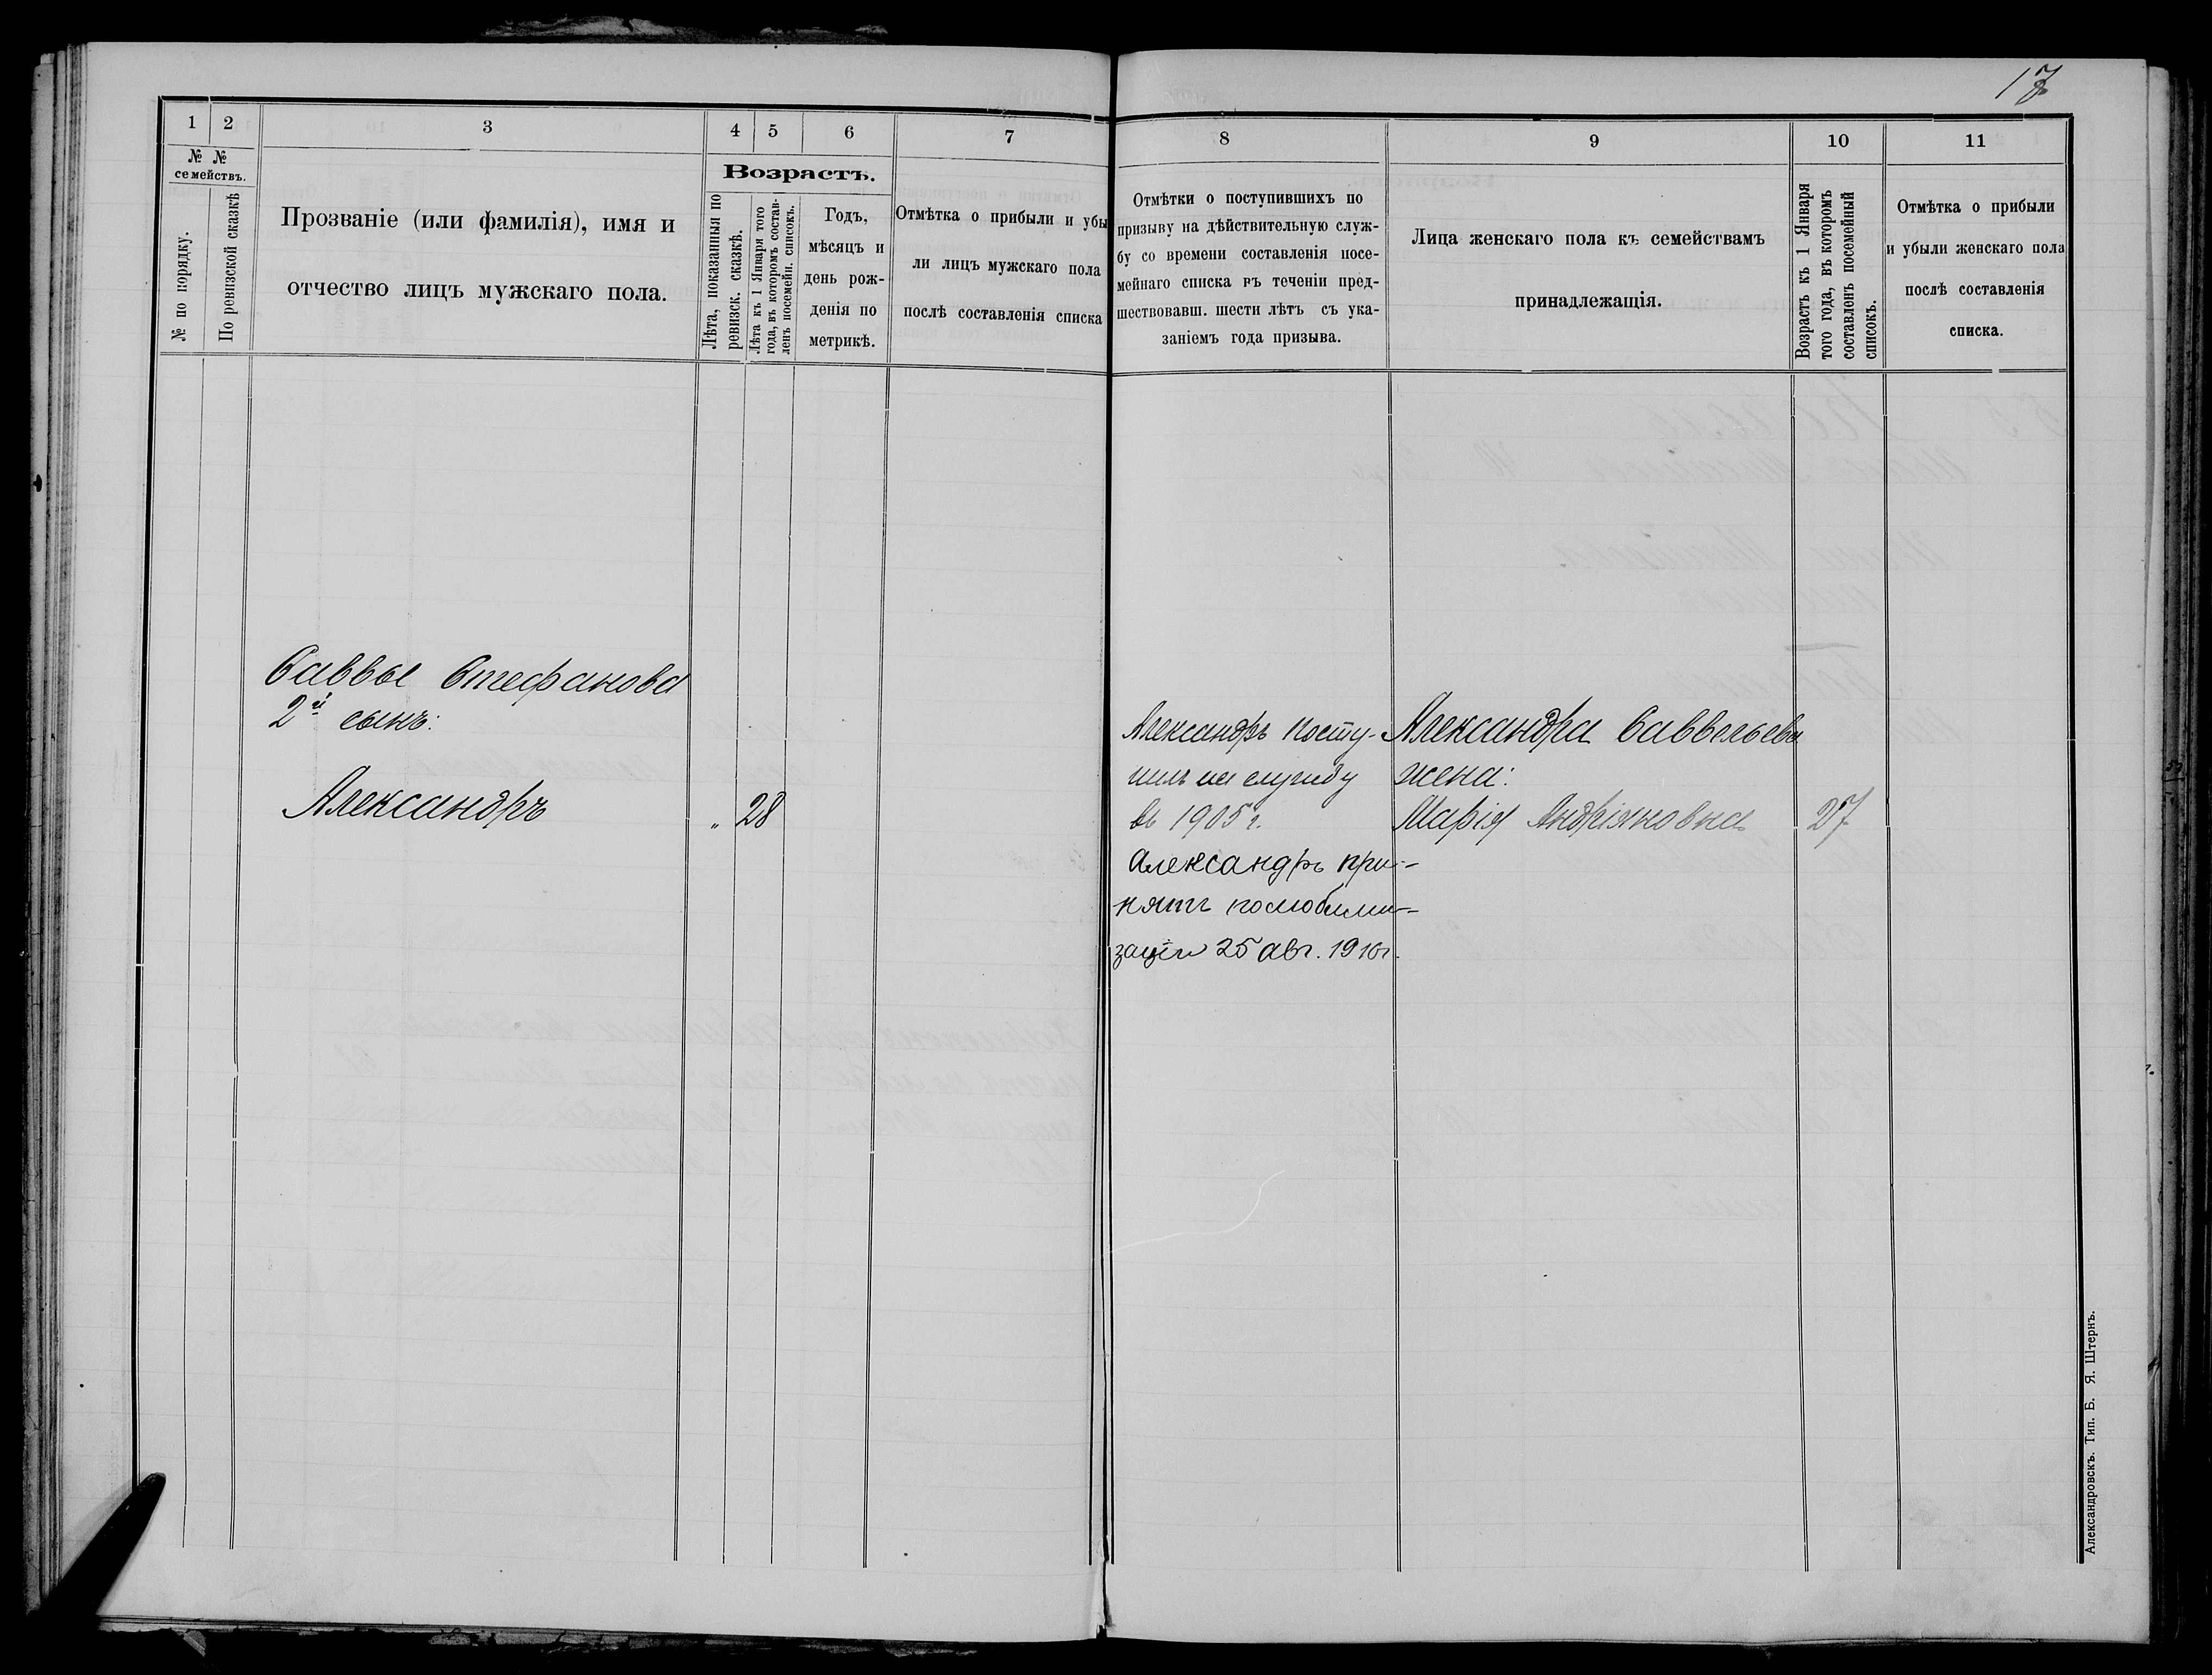 17
1
2
3
4
5
6
7
8
9
10
11
№ №
семействъ.
№ по порядку.
По ревизской сказкѣ
Прозваніе (или фамилія), имя и
отчество лицъ мужскаго пола.
Возрастъ.
Лѣта, показанныя по
ревизск. сказкѣ.
Лѣта къ 1 Января того
года, въ которомъ состав-
ленъ посемейн. списокъ.
Годъ,
мѣсяцъ и
день рож-
денія по
метрикѣ.
Отмѣтка о прибыли и убы
ли лицъ мужскаго пола
послѣ составленія списка
Отмѣтки о поступившихъ по
призыву на дѣйствительную служ-
бу со времени составленія посе-
мейнаго списка въ теченіи пред-
шествовавш. шести лѣтъ съ ука-
заніемъ года призыва.
Лица женскаго пола къ семействамъ
принадлежащія.
Возрастъ къ 1 Января
того года, въ которомъ
составленъ посемейный
списокъ.
Отмѣтка о прибыли
и убыли женскаго пола
послѣ составленія
списка.
Саввы Стефанова
2й сынъ:
Александръ
„ 28
Александръ посту-
пилъ на службу
въ 1905 г.
Александръ при-
нятъ помобили-
заціи 25 авг. 1910г.
Александра Саввельева
жена:
Марія Андріяновна
27
Александровскъ. Тип. Б. Я. Штернъ.